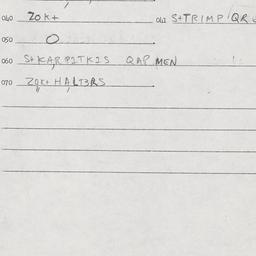 040 ZOK+ 041 S+TRIMP'QR
050 O
060 S+KARPITKIS QAP MEN
070 ZOK+ HALT3RS